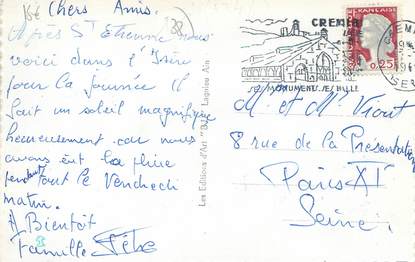 15€
38
Chers Amis.
Après St Etienne nous
voici dans l'Isère
pour la journée Il
fait un soleil magnifique
heureusement car nous
avons eut la pluie
pendant tout le Vendredi
matin.
A Bientôt
Famille
Les Editions d'Art "
Lagnieu Ain
CREMIEU
SES MONUMENTS, SES HALLES
FRANÇAISE
0,25
M. et Mme Viout
8 rue de la Présentation
Paris XI
Seine